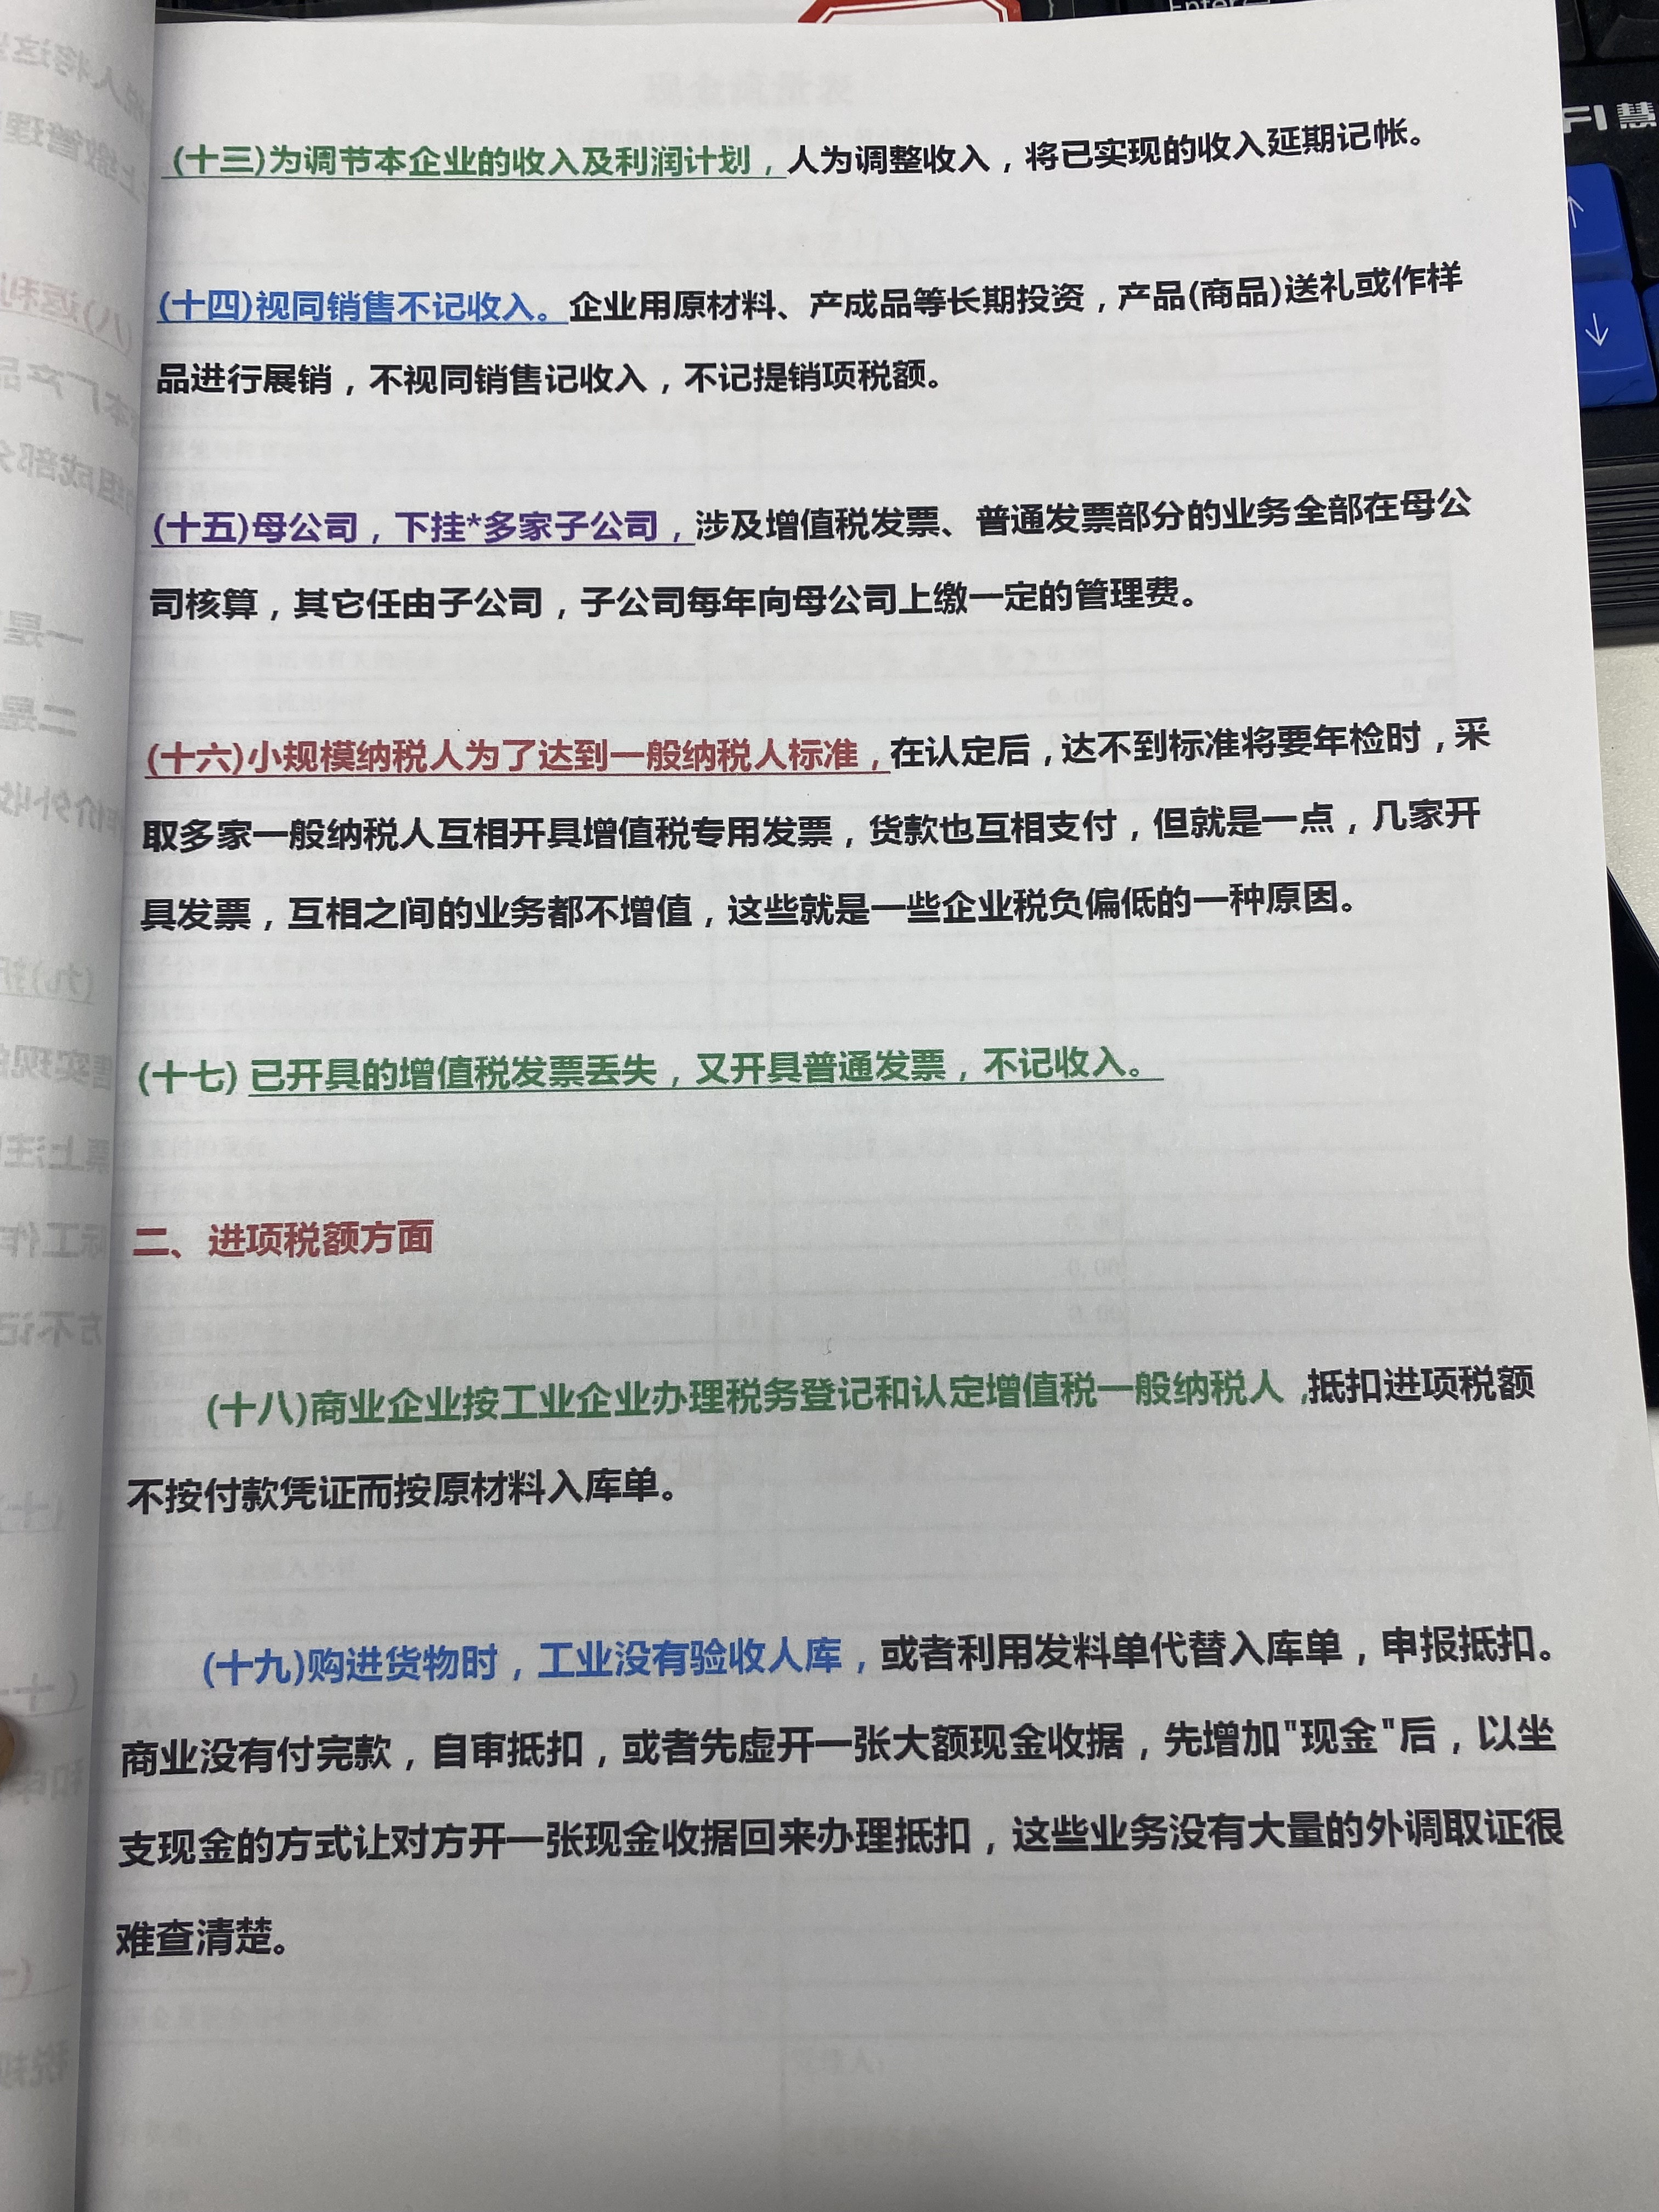 (十三)为调节本企业的收入及利润计划，人为调整收入，将已实现的收入延期记帐。
(十四)视同销售不记收入。企业用原材料、产成品等长期投资，产品(商品)送礼或作样
品进行展销，不视同销售记收入，不记提销项税额。
(十五)母公司，下挂*多家子公司，涉及增值税发票、普通发票部分的业务全部在母公
司核算，其它任由子公司，子公司每年向母公司上缴一定的管理费。
(十六)小规模纳税人为了达到一般纳税人标准，在认定后，达不到标准将要年检时，采
取多家一般纳税人互相开具增值税专用发票，货款也互相支付，但就是一点，几家开
具发票，互相之间的业务都不增值，这些就是一些企业税负偏低的一种原因。
(十七) 已开具的增值税发票丢失，又开具普通发票，不记收入。
二、进项税额方面
(十八)商业企业按工业企业办理税务登记和认定增值税一般纳税人,抵扣进项税额
不按付款凭证而按原材料入库单。
(十九)购进货物时，工业没有验收人库，或者利用发料单代替入库单，申报抵扣。
商业没有付完款，自审抵扣，或者先虚开一张大额现金收据，先增加"现金"后，以坐
支现金的方式让对方开一张现金收据回来办理抵扣，这些业务没有大量的外调取证很
难查清楚。
Enter
FI 慧
↑
↓